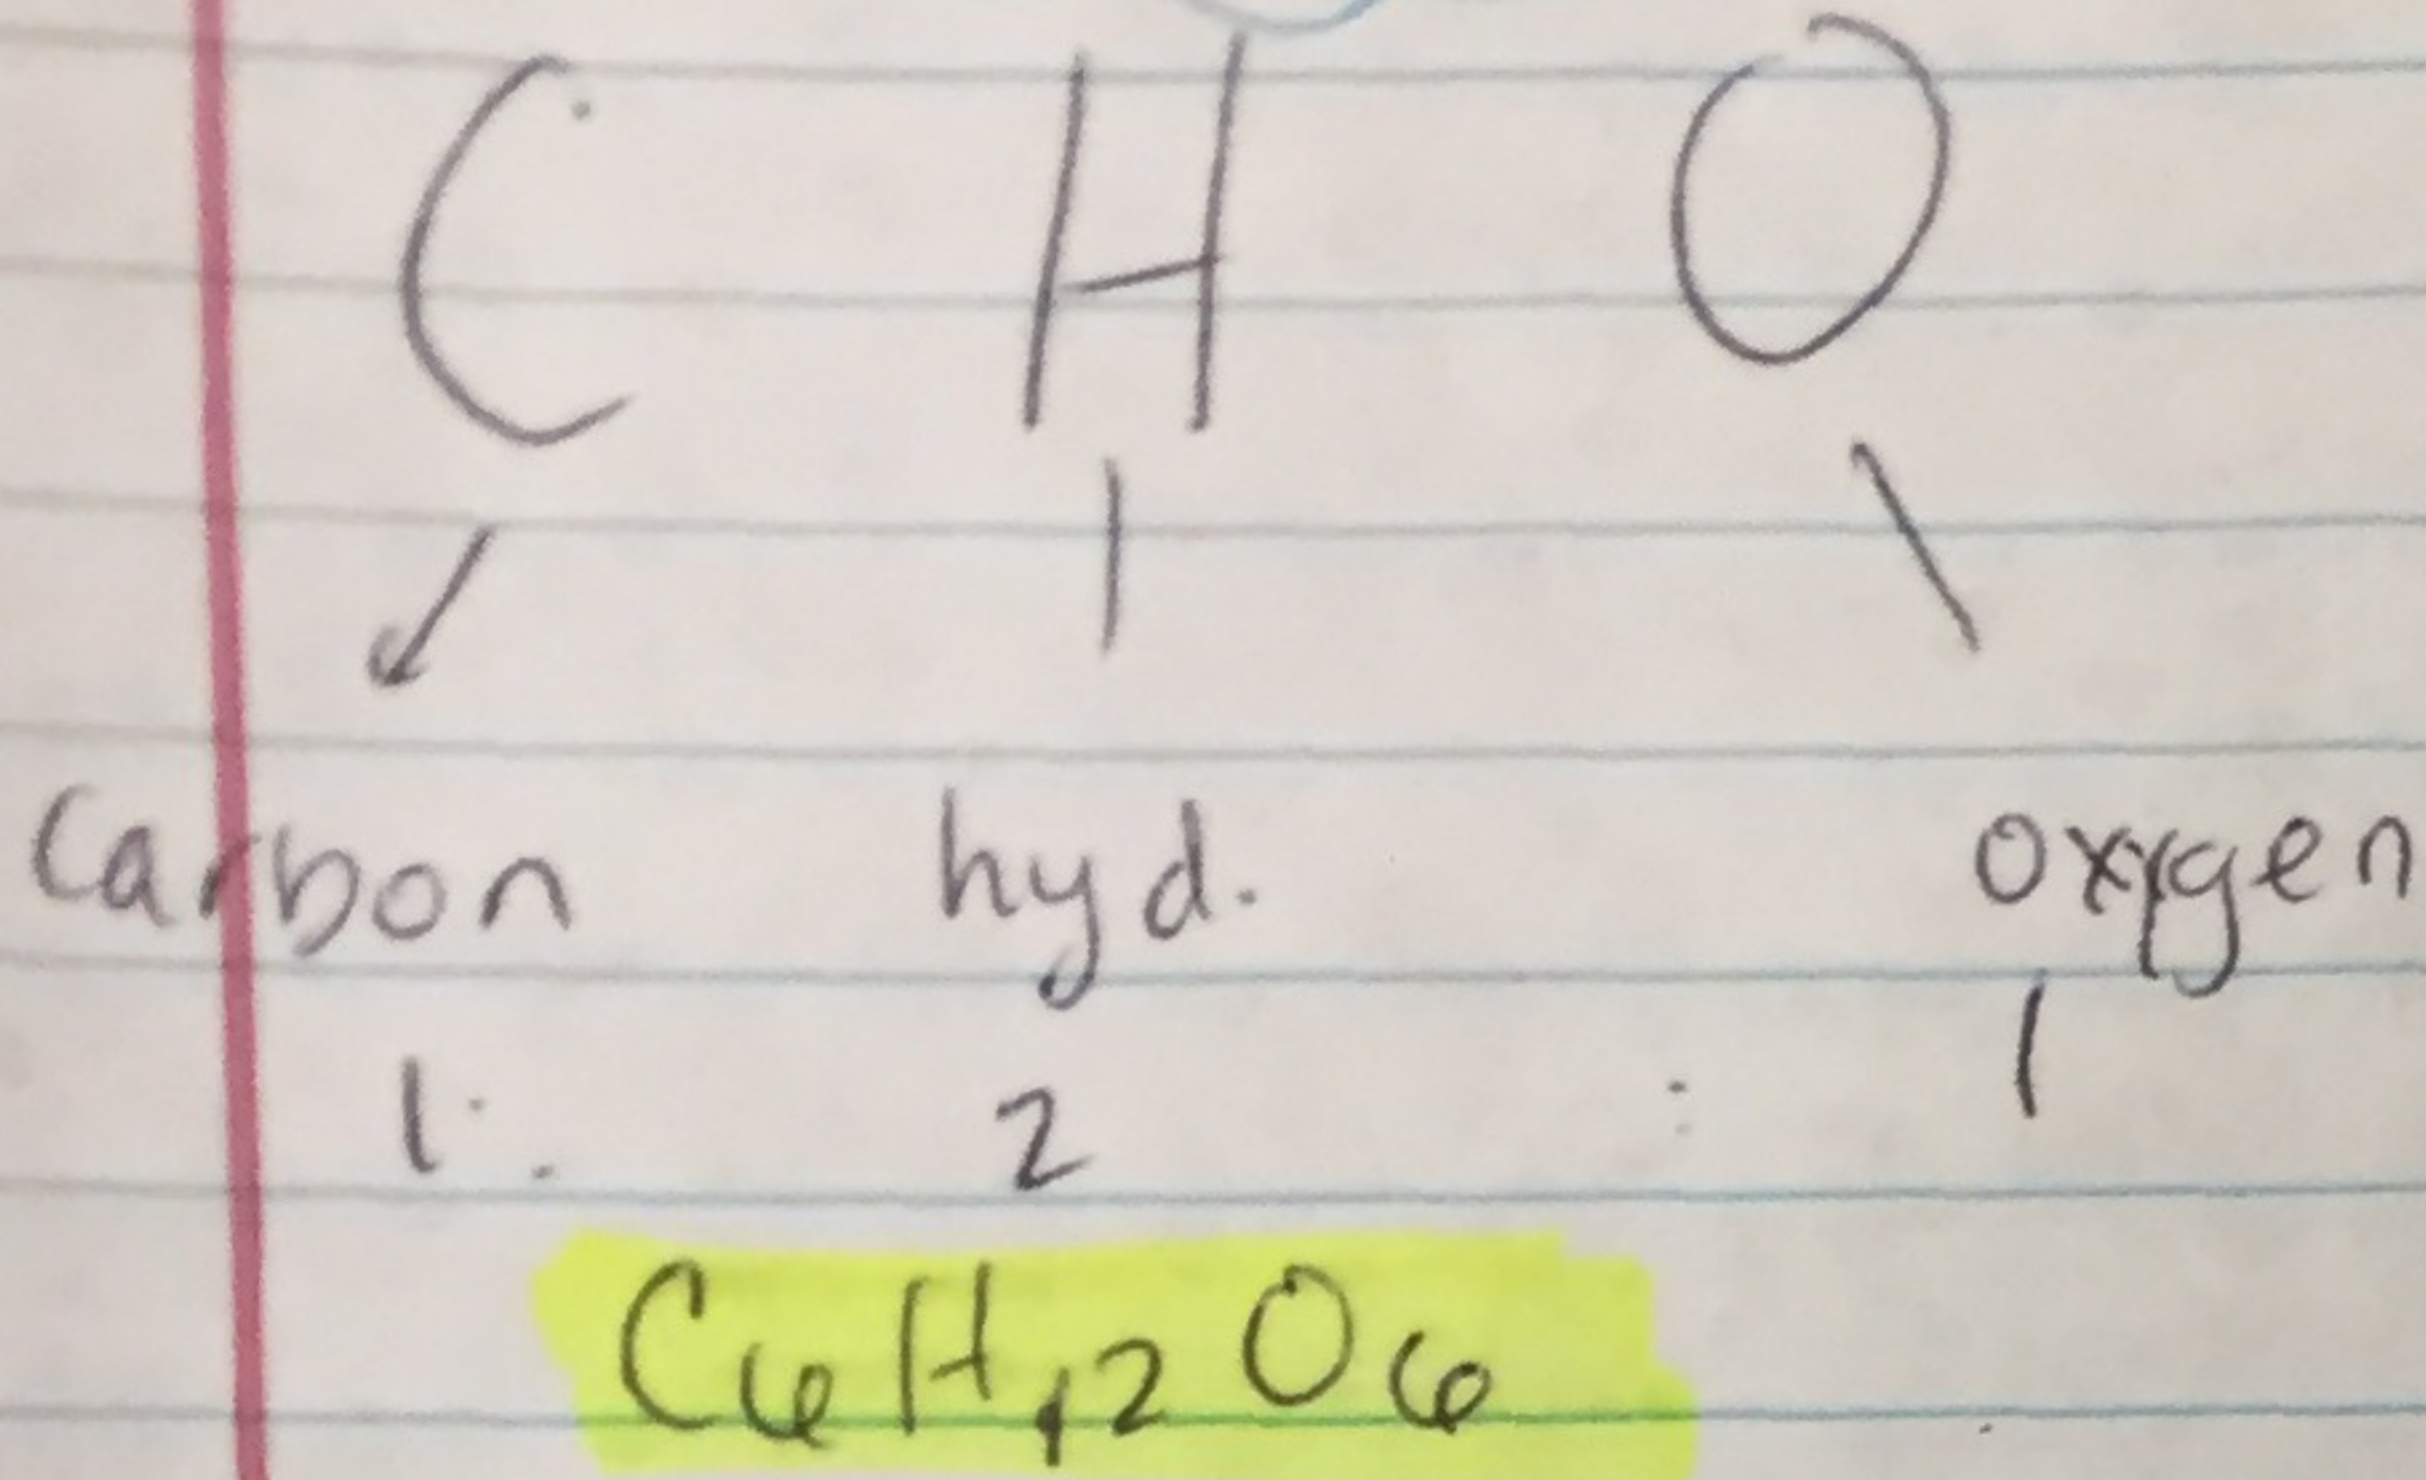 C H O
Carbon hyd. oxygen
1 : 2 : 1
C6H12O6